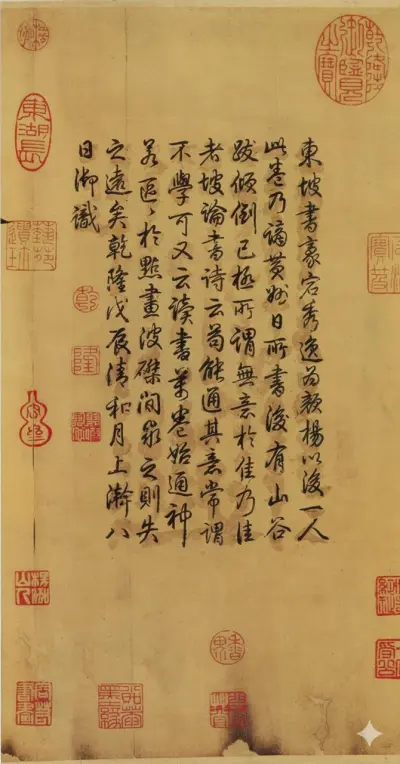 乾隆御覽之寶
東坡書豪宕秀逸為顏楊以後一人
此卷乃謫黃州日所書後有山谷
跋傾倒已極所謂無意於佳乃佳
者坡論書詩云苟能通其意常謂
不學可又云讀書萬卷始通神
若區〻於點畫波磔間求之則失
之遠矣乾隆戊辰清和月上澣八
日御識
乾
隆
東湖長